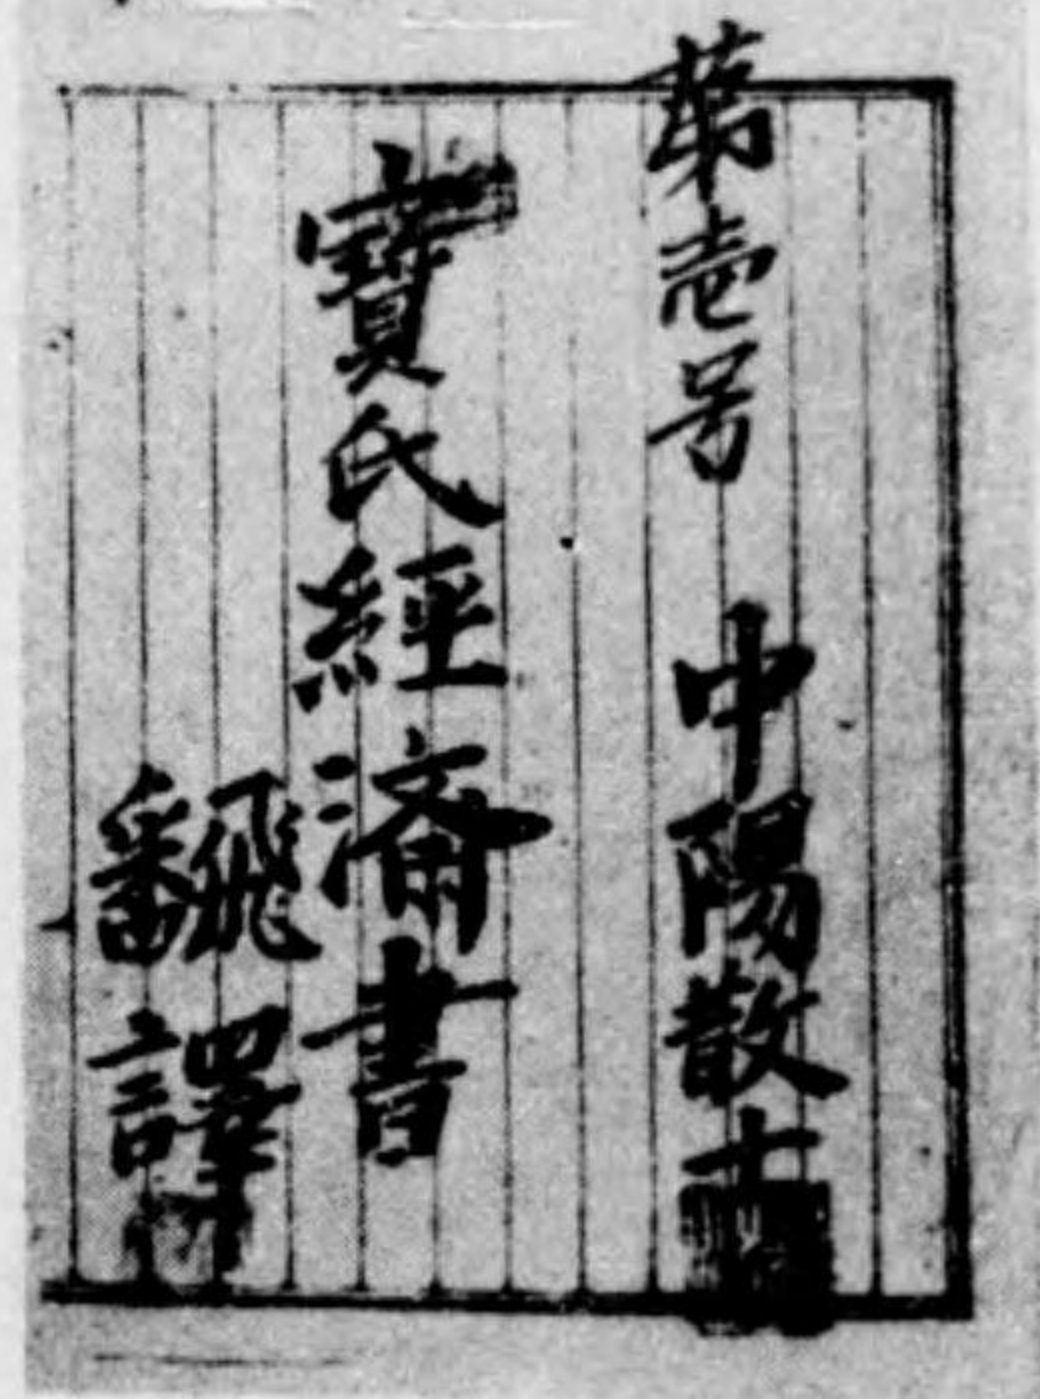 第壱号 中陽散士
寶氏經濟書
飜譯